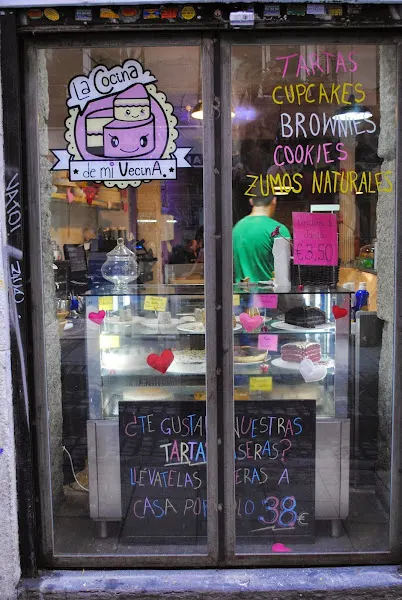 La Cocina
de mi VecinA.
TARTAS
CUPCAKES
BROWNIES
COOKIES
ZUMOS NATURALES
€3,50
¿TE GUSTAN NUESTRAS
TARTAS CASERAS?
LLÉVATELAS ENTERAS A
CASA POR SOLO 38€